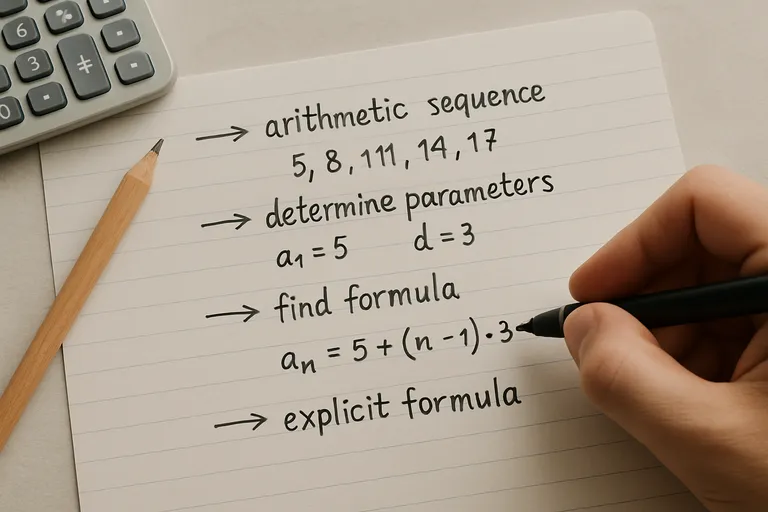 6 %
3
0
→ arithmetic sequence
5, 8, 111, 14, 17
→ determine parameters
a₁ = 5 d = 3
→ find formula
aₙ = 5 + (n - 1) · 3
→ explicit formula